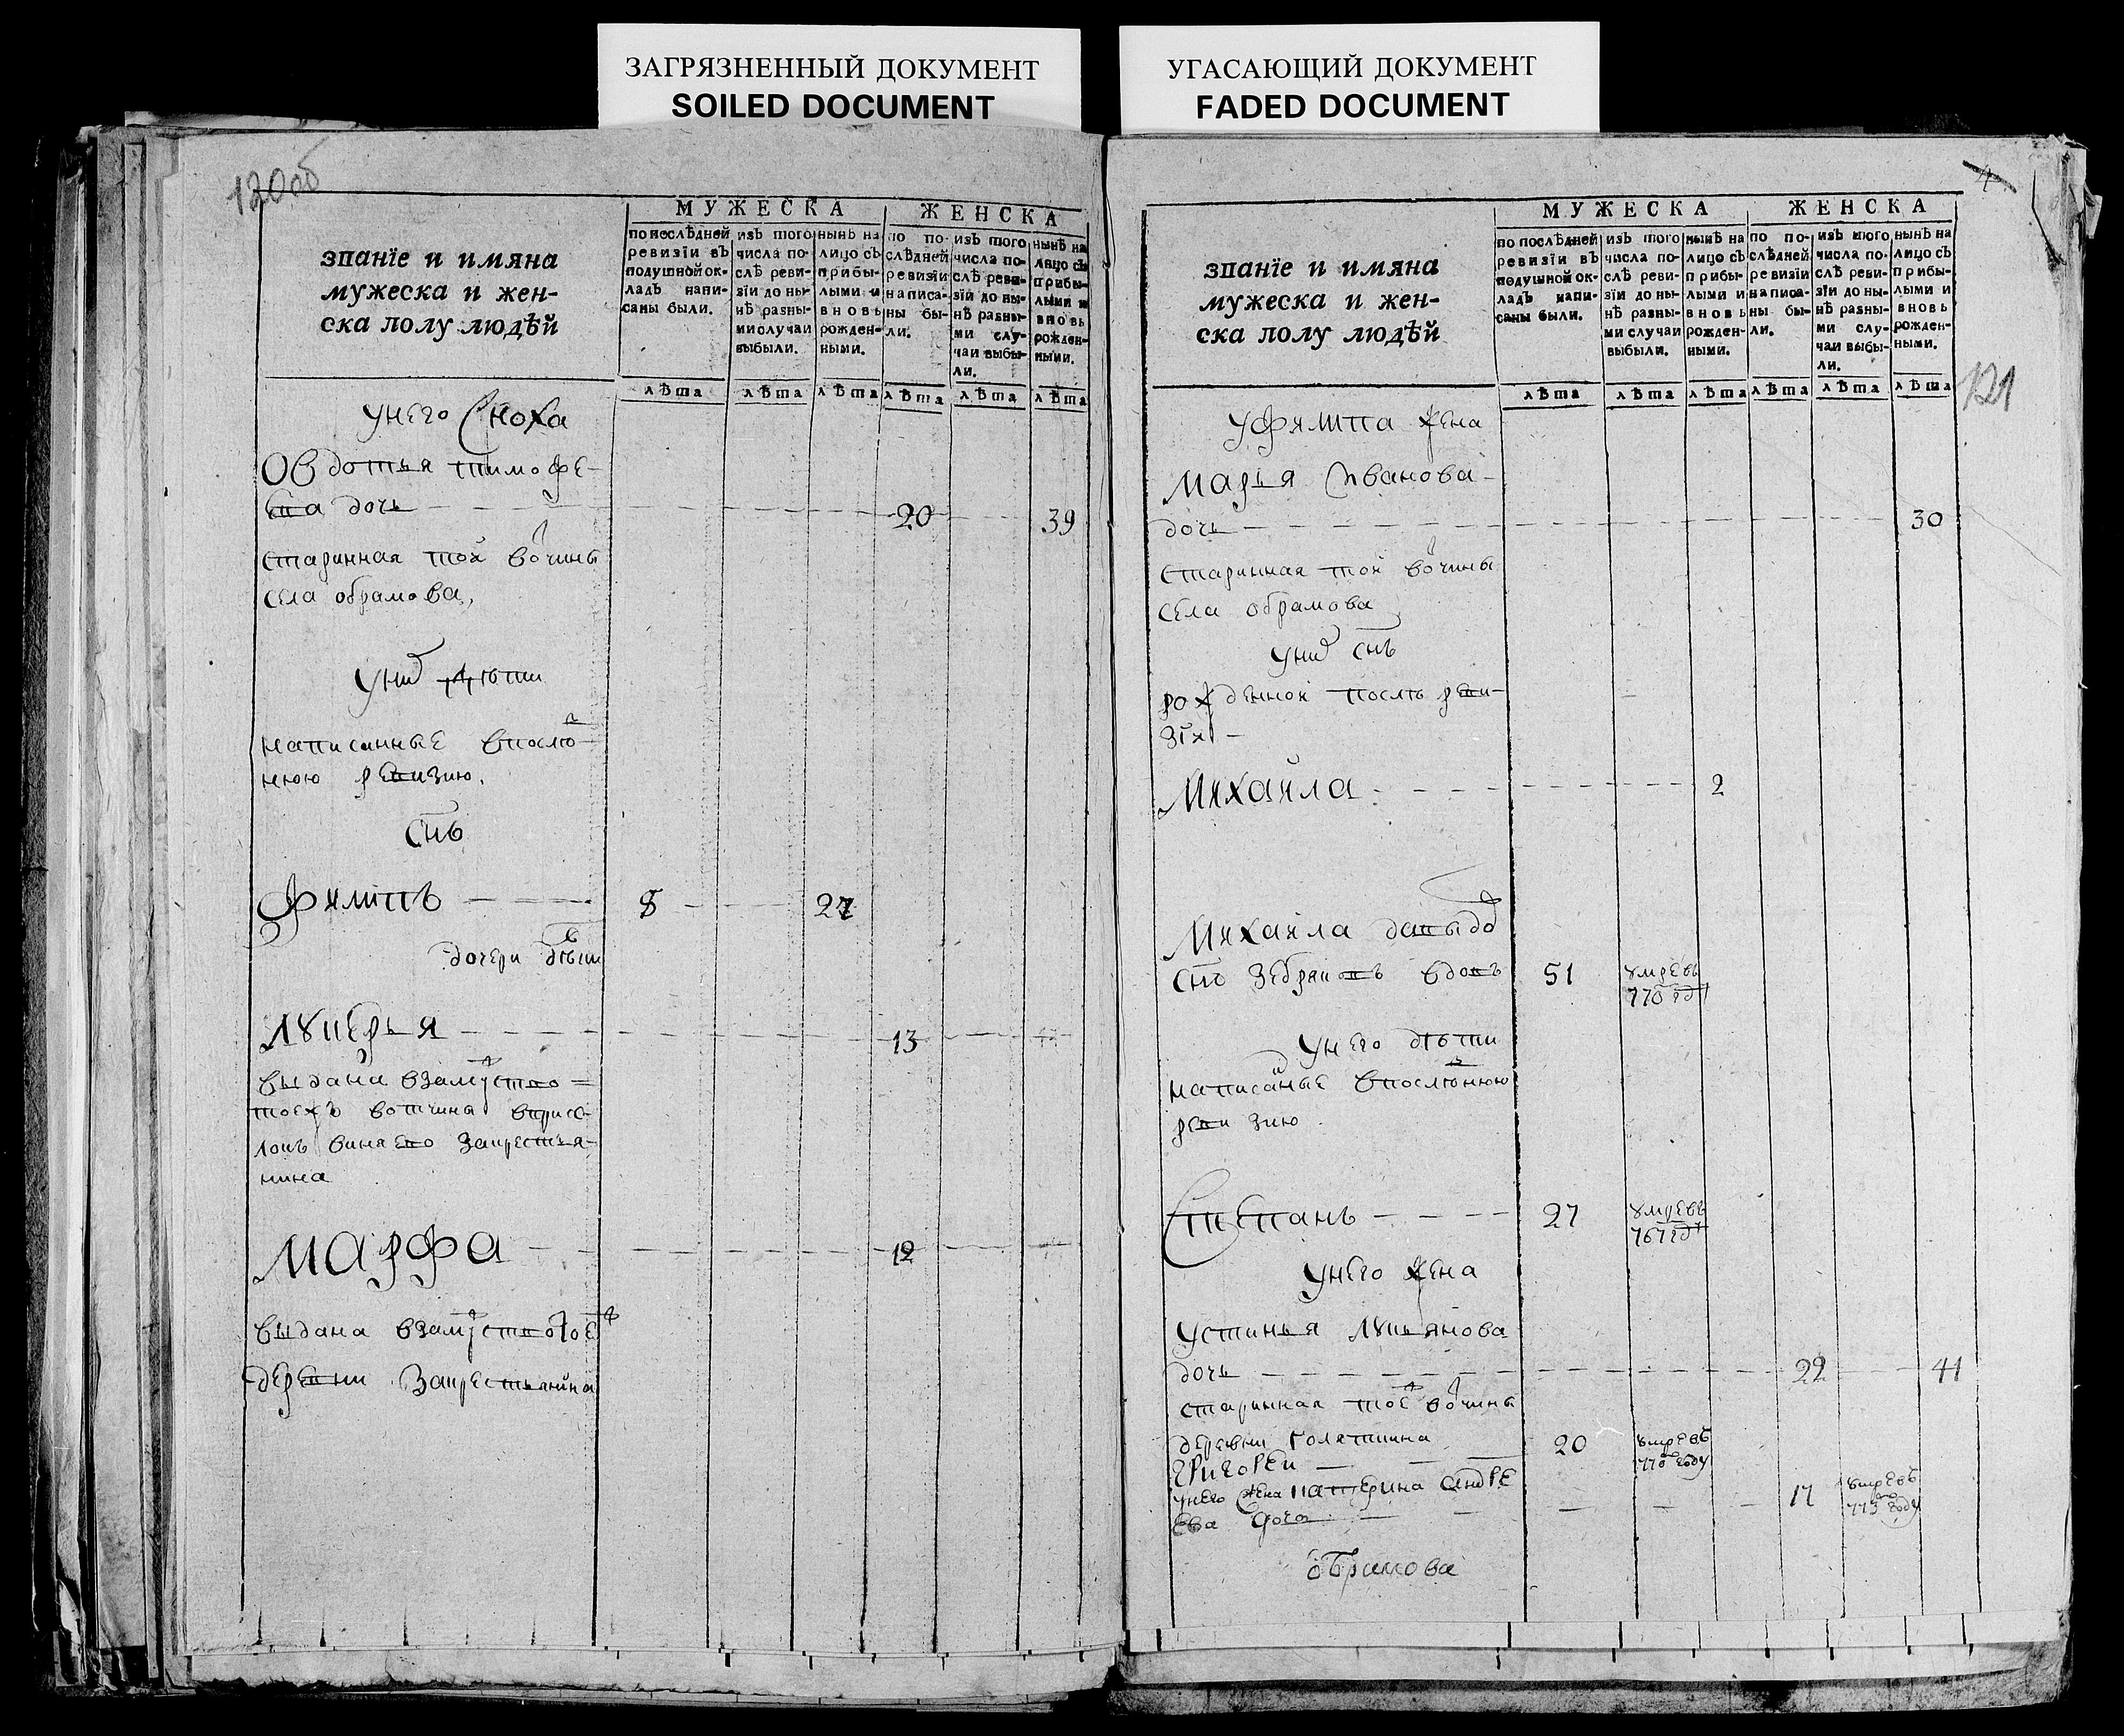 ЗАГРЯЗНЕННЫЙ ДОКУМЕНТ
SOILED DOCUMENT
УГАСАЮЩИЙ ДОКУМЕНТ
FADED DOCUMENT
120об
МУЖЕСКА
ЖЕНСКА
званїе и имяна
мужеска и жен-
ска полу людѣй
по послѣдней
ревизїи въ
подушной ок-
ладъ напи-
саны были.
изъ того
числа по-
слѣ реви-
зїи до ны-
нѣ разны-
ми случаи
выбыли.
нынѣ на
лицо съ
прибы-
лыми и
вновь
рожден-
ными.
по по-
слѣдней
ревизїи
написа-
ны бы-
ли.
изъ того
числа по-
слѣ реви-
зїи до ны-
нѣ разны-
ми слу-
чаи выбы-
ли.
нынѣ на
лицо съ
прибы-
лыми и
вновь
рожден-
ными.
лѣта лѣта лѣта лѣта лѣта лѣта
у него сноха
Овдотья тимофе-
ева дочь 20 39
старинная той вочины
села обрамова,
у них дѣти
написанные впослѣ
нюю ревизию.
снъ
Филипъ 8 27
дочери
Лукерья 13
выдана взамуство
тоехъ вотчины
за крестья-
нина
Марфа 12
выдана взамуство тое
деревни за крестьянина
4
121
МУЖЕСКА
ЖЕНСКА
званїе и имяна
мужеска и жен-
ска полу людѣй
по послѣдней
ревизїи въ
подушной ок-
ладъ напи-
саны были.
изъ того
числа по-
слѣ реви-
зїи до ны-
нѣ разны-
ми случаи
выбыли.
нынѣ на
лицо съ
прибы-
лыми и
вновь
рожден-
ными.
по по-
слѣдней
ревизїи
написа-
ны бы-
ли.
изъ того
числа по-
слѣ реви-
зїи до ны-
нѣ разны-
ми слу-
чаи выбы-
ли.
нынѣ на
лицо съ
прибы-
лыми и
вновь
рожден-
ными.
лѣта лѣта лѣта лѣта лѣта лѣта
у филипа жена
Марья Иванова
дочь 30
старинная той вочины
села обрамова
у них снъ
рожденной послѣ реви-
зїи
Михаила 2
Михаила давыдов
снъ вдовъ 51 умре въ
770 годꙋ
у него дѣти
написаные впослѣнюю
ревизию
Степанъ 27 умре въ
767 годꙋ
у него жена
устинья Лукьянова
дочь 22 41
старинная тое вочины
деревни голяткина
григореи 20 умре въ
770 году
у него жена катерина андре
ева дочь 17 умре въ
773 году
обрамова